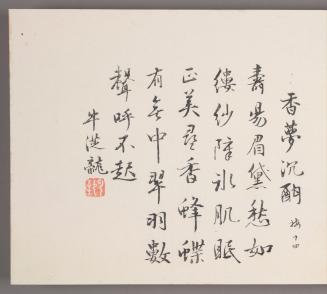 香夢沉酣
壽陽眉黛愁如
縷紗障冰肌眠
正美尋香蜂蝶
有無中翠羽數
聲呼不起